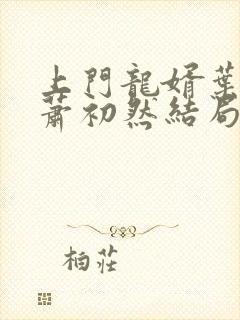 上門龍婿葉
蕭初然結局
柏莊